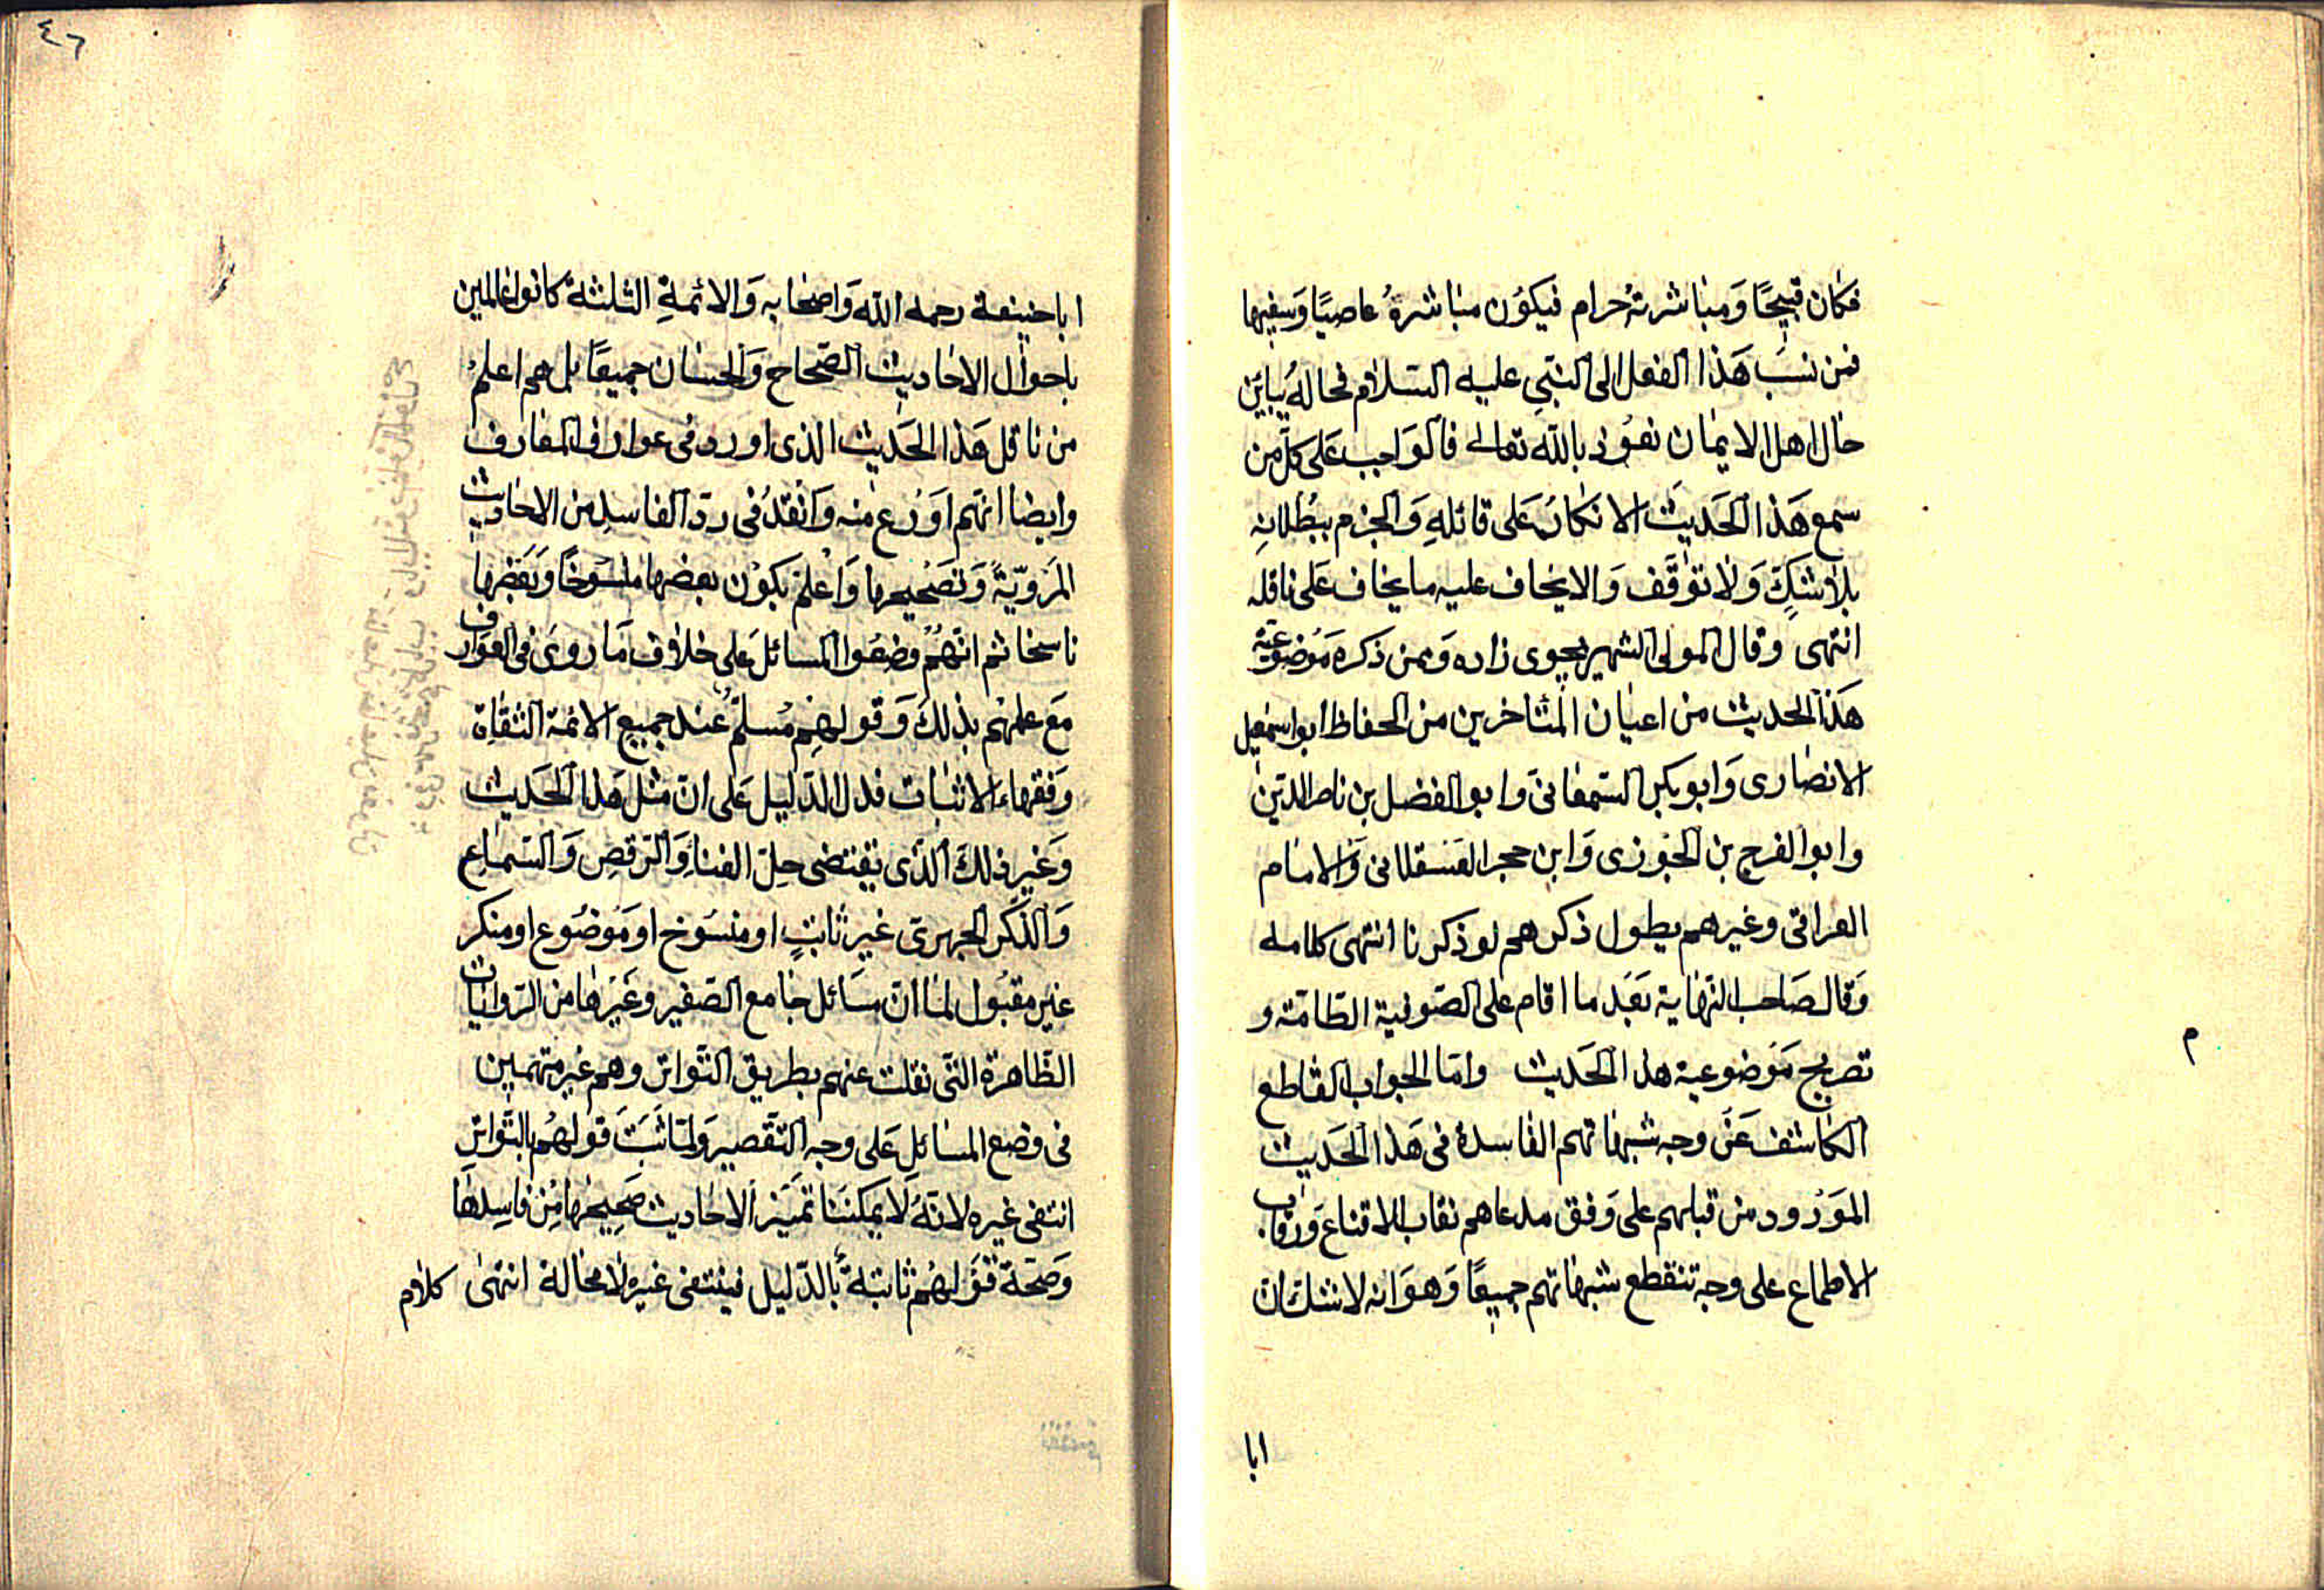 فكان قبيحًا وَمباشرتهُ حرام فيكوُن مباشرهُ عاصيًا وَسفيها
فمن نسبَ هَذا الفعل الى النبّيِ عليه السّلام فحالهُ يباين
حال اهل الايمان نعوُذ بالله تعالى فالوَاجب عَلى كلّ من
سمع هَذا الحَديث الانكارُ عَلى قائلهِ وَالجزم ببُطلانِهِ
بلا شكٍّ وَلا توَقّف وَالا يخاف عليه ما يخاف عَلى ناقله
انتهى وقال المولى الشهير بچوى زاده وَممن ذكره مَوضوعيّة
هَذا الحديث من اعيان المتأخرين من الحفاظ ابو اسمعيل
الانصارى وَابو بكر السّمعانىّ وابو الفضل بن ناصر الدّين
وابو الفرج بن الجوزى وَابن حجر العَسقلانى وَالامام
العراقى وغيرهم يطول ذكرهم لو ذكرنا انتهى كلامه
وَقال صَاحب النّهاية بَعَد ما اقام على الصّوفية الطّامّة و
تصريح مَوضوعية هذا الحَديث وامّا الجواب القاطع
الكاشف عَن وجه شبهاتهم الفاسدة فى هَذا الحَديث
الموَرُود من قبلهم على وَفق مدعاهم نقاب الاقناع وَرقاب
الاطماع على وجه تنقطع شبهاتهم جميعًا وَهوَ انه لا شك ان
ابا
م
٤٦
ابا حنيفة رحمه الله وَاصحابه وَالائمةِ الثلثة كانوا عالمين
باحوال الاحاديث الصّحاح وَالحسان جميعًا بل هم اعلمُ
من ناقل هَذا الحَديث الذى اورد فى عوارف المعارف
وايضا انهّم اوَرع منه وَانقدُ فى ردّ الفاسد من الاحاديث
المَرَويّة وَتصَحيحها وَاعلم بكوُن بعضها منسوَخًا وَبَعَضها
ناسخا ثم انهّمُ وضعوُا المسائل عَلى خلاف مَا روىَ فى العوَارف
مَع علمهم بذلكَ وَقولهم مُسلمّ عند جميع الائمة الثقاة
وَفقهاء الاثبات فدل الدّليل عَلى انّ مثل هَذا الحَديث
وَغير ذلكَ الذّى يقتضى حلّ الغناءِ وَالرّقصِ وَالسّماعِ
وَالذّكر الجهرىّ غير ثابتٍ او منسوُخ او مَوُضوُع او منكر
غير مقبُول لما انّ مسَائل جامع الصّغير وغيَرها من الرّوايات
الظّاهرة التّى نقلت عنهم بطريق التّواتر وهم غير متهمين
فى وضع المسائل عَلى وجه التّقصير وَلمّا ثبَتَ قولهُم بالتّواتر
انتفى غيره لانهُ لا يمكننَا تميَيز الاحاديث صَحيحها مِن فاسِدهَا
وَصحّة قوَلهُم ثابتة بالدّليل فينتفى غيره لا محالة انتهى كلام